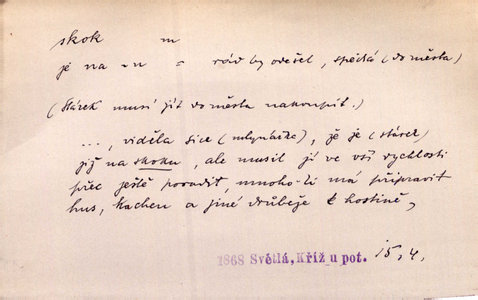 skok m
je na -u = rád by odešel, spěchá (do města)
(Stárek musí jít do města nakoupit.)
..., viděla sice (mlynářka), že je (stárek)
již na skoku, ale musil jí ve vší rychlosti
přec ještě poradit, mnoho-li má připravit
hus, kachen a jiné drůbeže k hostině,
1868 Světlá, Kříž u pot. 15,4.